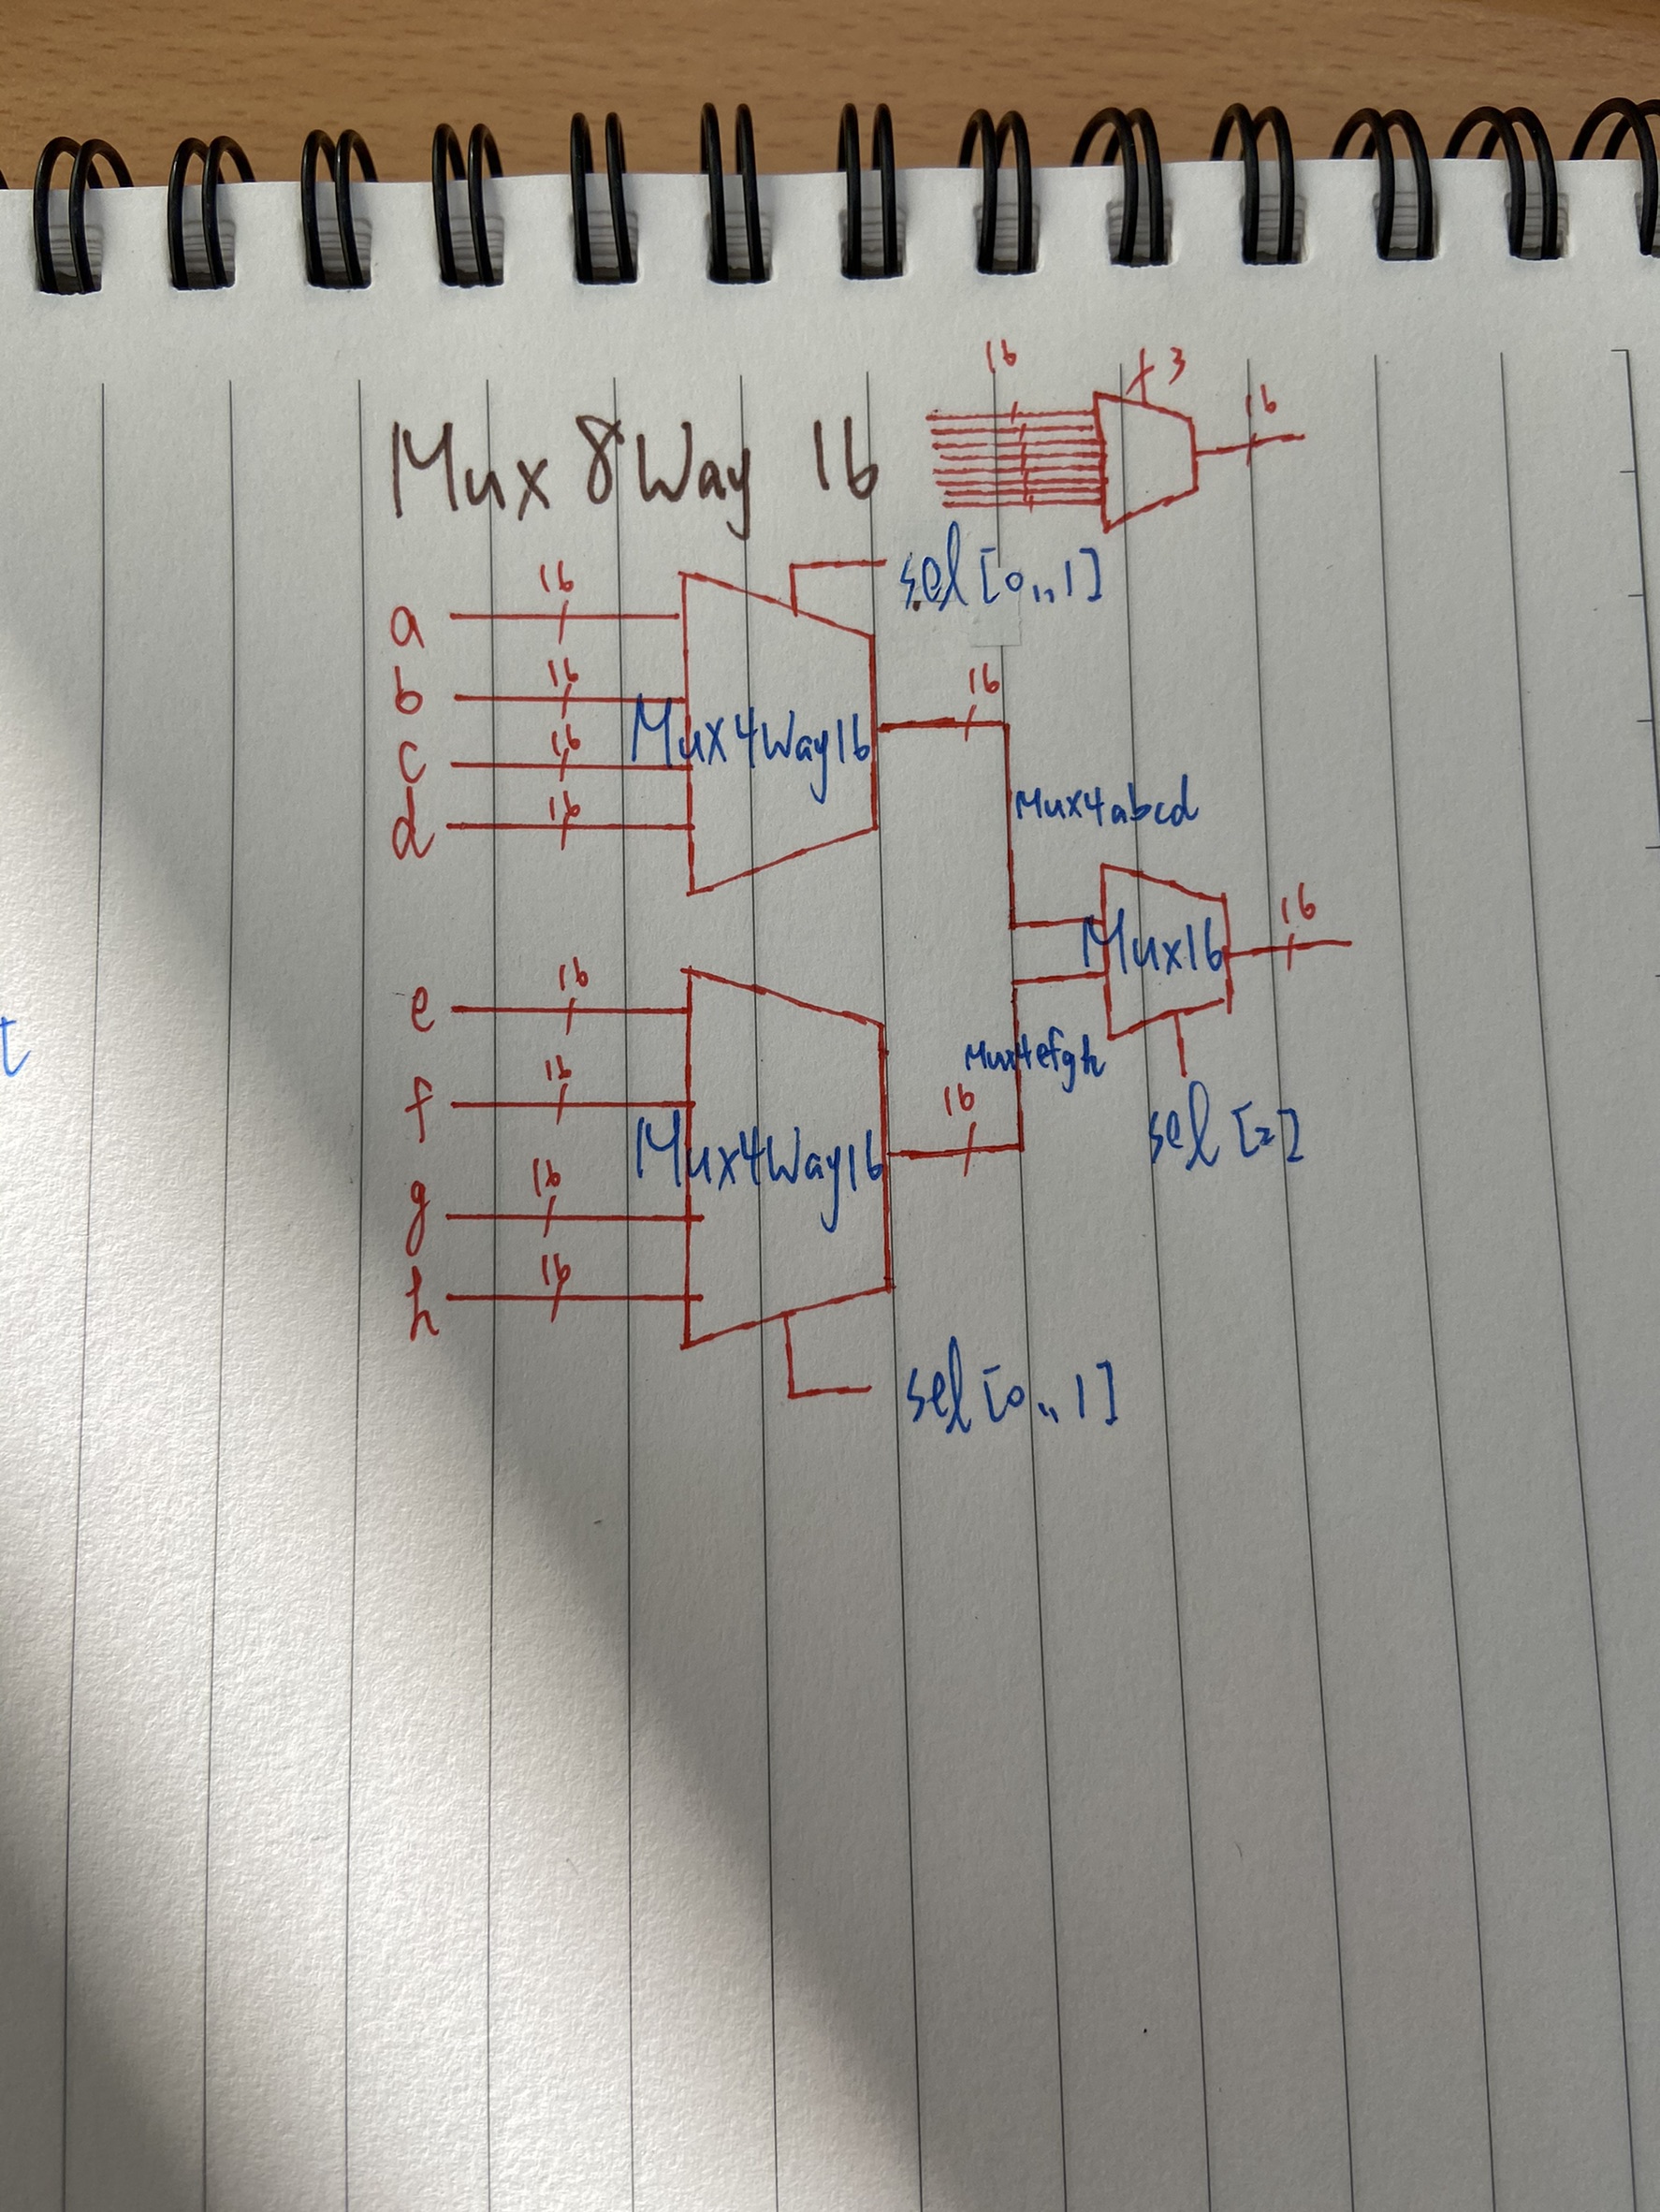 16
3
16
Mux 8Way 16
sel[0..1]
16
a
16
b
16
c
16
d
Mux4Way16
16
Mux4abcd
Mux16
16
16
e
16
f
16
g
16
h
Mux4Way16
Mux4efgh
16
sel[2]
sel[0..1]
t